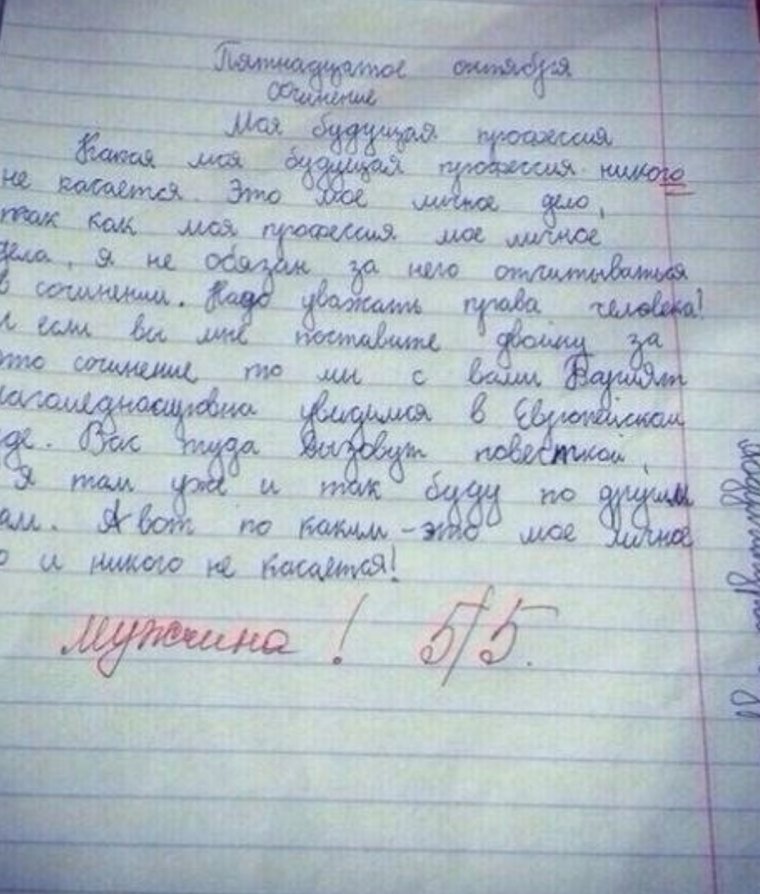 Пятнадцатое октября
Сочинение
Моя будущая профессия
Какая моя будущая профессия никого
не касается. Это мое личное дело,
так как моя профессия мое личное
дела, я не обязан за него отчитываться
в сочинении. Надо уважать права человека!
И если вы мне поставите двойку за
это сочинение то мы с вами
увидимся в Европейском
де. Вас туда вызовут повесткой,
Я там уже и так буду по другим
ам. А вот по каким - это мое личное
о и никого не касается!
мужчина! 5/5.